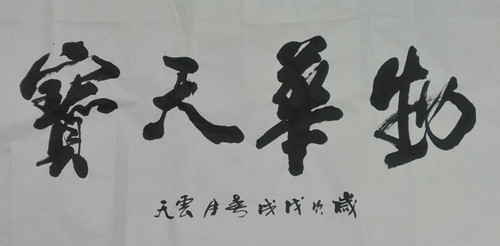 物華天寶
歲次戊戌春月雲天